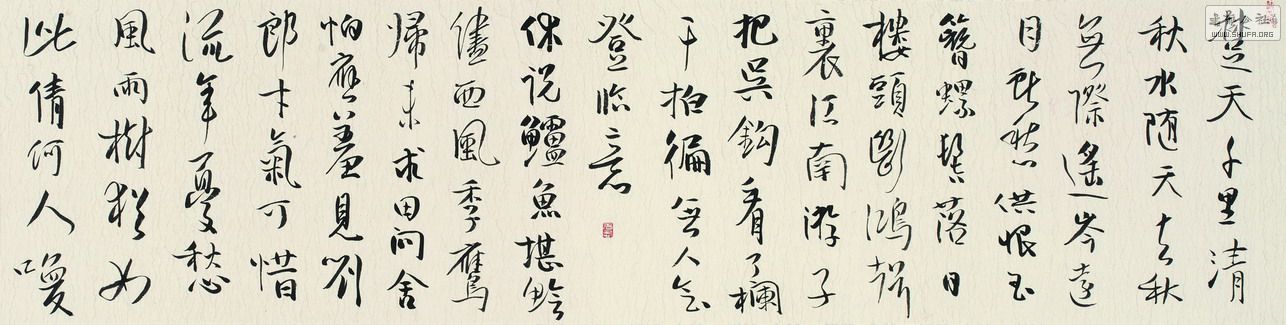 楚天千里清
秋水随天去秋
無際遙岑遠
目獻愁供恨玉
簪螺髻落日
樓頭斷鴻聲
裏江南游子
把吳鈎看了欄
干拍徧無人會
登臨意
休说鱸魚堪鱠
儘西風季鷹
歸未求田问舍
怕應羞見劉
郎才氣可惜
流年憂愁
風雨樹猶如
此倩何人喚
WWW.SHUFA.ORG